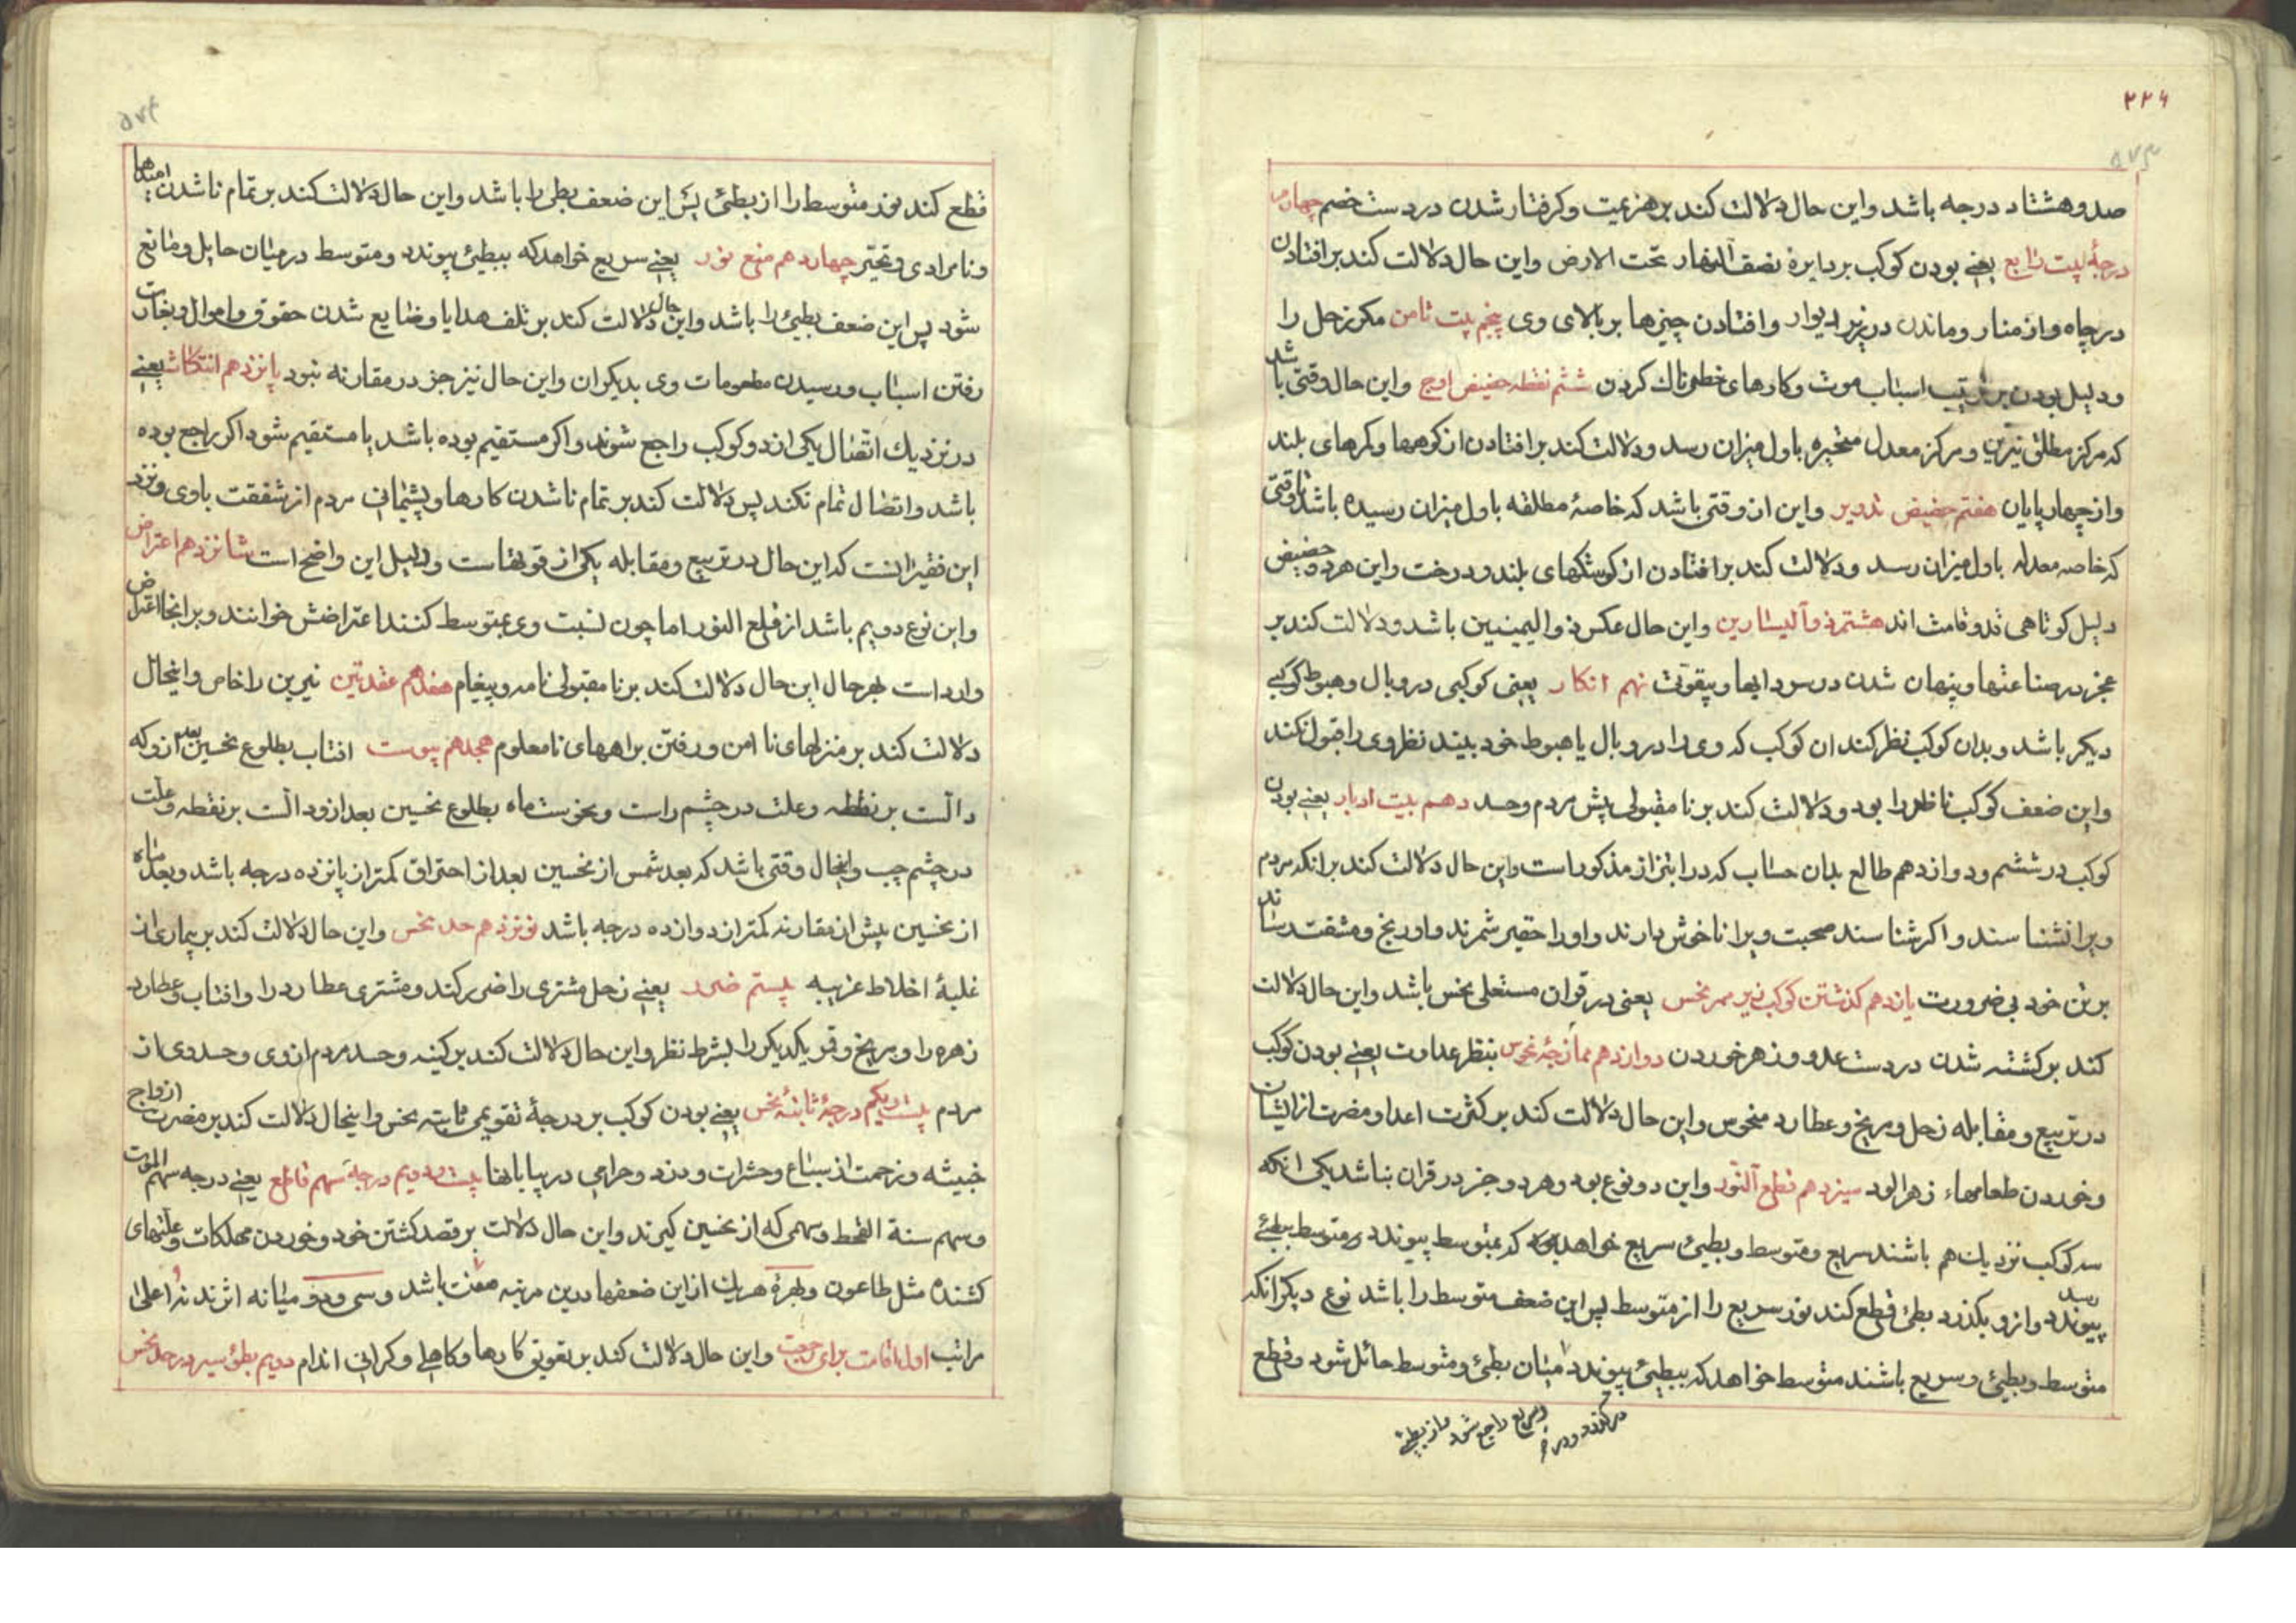 ۲۲۴
۵۷۳
صد و هشتاد درجه باشد واین حال دلالت کند بر هزیمیت و کرفتار شدن در دست خصم چهارم
درجۀ بیت رابع یعنے بودن کوکب بر دایرۀ نصف النهار تحت الارض واین حال دلالت کند بر افتادن
در چاه واز منار وماندن در زیر دیوار وافتادن چیزها بر بالای وی پنجم بیت ثامن مکر زحل را
ودلیل بودن بر ترتیب اسباب موت وکارهای خطرناک کردن ششم نقطه حضیض اوج واین حال وقتی باشد
که مرکز مطلق نیرین ومرکز معدل متحیره باول میزان رسد ودلالت کند بر افتادن از کوهها وکمرهای بلند
واز چهارپایان هفتم حضیض تدویر واین ان وقتی باشد که خاصۀ مطلقه باول میزان رسیده باشد تا وقتی
که خاصه معدله باول میزان رسد ودلالت کند بر افتادن از کوشکهای بلند ودرخت واین هر دو حضیض
دلیل کوتاهی قد وقامت اند هشتم ذو الیسارین واین حال عکس ذو الیمینین باشد ودلالت کند بر
عجز در صناعتها وپنهان شدن در سردابها وبیقوتی نهم انکار یعنی کوکبی در وبال وهبوط کوکبے
دیکر باشد وبدان کوکب نظر کند ان کوکب که وی را در وبال یا هبوط خود بیند نظر وی را قبول نکند
واین ضعف کوکب ناظر را بود ودلالت کند بر نا مقبولی پیش مردم وحسد دهم بیت ادبار یعنے بودن
کوکب در ششم ودوازدهم طالع بدان حساب که در ابتزاز مذکور است واین حال دلالت کند بر انکه مردم
ویرا نشناسند واکر شناسند صحبت ویرا ناخوش دارند واورا حقیر شمرند واو رنج ومشقت رساند
بر تن خود بی ضرورت یازدهم کذشتن کوکب زیر ممر نحس یعنی در قران مستعلی نحس باشد واین حال دلالت
کند بر کشته شدن در دست عدو وزهر خوردن دوازدهم ممازجۀ نحوس بنظر عداوت یعنے بودن کوکب
در تربیع ومقابله زحل ومریخ وعطارد منحوس واین حال دلالت کند بر کثرت اعدا ومضرت از ایشان
وخوردن طعامهاء زهرالود سیزدهم قطع النور واین دو نوع بود وهر دو جز در قران نباشد یکی انکه
سه کوکب نزدیک هم باشند سریع ومتوسط وبطیئ سریع خواهد که بمتوسط پیوندد ومتوسط ببطیئ
پیوندد وازو بکذرد بطی قطع کند نور سریع را از متوسط پس این ضعف متوسط را باشد نوع دیکر انکه
متوسط وبطیئ وسریع باشند متوسط خواهد که ببطیئ پیوندد میان بطئ ومتوسط حائل شود وقطع
وسریع راجع شود واز بطیئ
۵۷۴
قطع کند نور متوسط را از بطئ پس این ضعف بطی را باشد واین حال دلالت کند بر تمام ناشدن امیدها
ونامرادی وتحیر چهاردهم منع نور یعنے سریع خواهد که ببطیئ پیوندد ومتوسط در میان حایل ومانع
شود پس این ضعف بطیئ را باشد واین حال دلالت کند بر تلف هدایا وضایع شدن حقوق واموال وبغارت
رفتن اسباب ورسیدن مطعومات وی بدیکران واین حال نیز جز در مقارنه نبود پانزدهم انتکاث یعنے
در نزدیک اتصال یکی از دو کوکب راجع شوند واکر مستقیم بوده باشد یا مستقیم شود اکر راجع بوده
باشد واتصال تمام نکند پس دلالت کند بر تمام ناشدن کارها وپشیمانی مردم از شفقت باوی ونزد
این فقیر انست که این حال در تربیع ومقابله یکی از قوتهاست ودلیل این واضح است شانزدهم اعتراض
واین نوع دویم باشد از قطع النور اما چون نسبت وی بمتوسط کنند اعتراضش خوانند وبرانجا اعتراض
وارد است بهر حال این حال دلالت کند بر نا مقبولی نامه وپیغام هفدهم عقدتین نیرین را خاص واینحال
دلالت کند بر منزلهای نا امن ورفتن براههای نا معلوم هجدهم پیوست افتاب بطلوع نحسین بعد ازو که
دالست بر نقطه وعلت در چشم راست ونحوست ماه بطلوع نحسین بعد ازو دالست بر نقطه وعلت
در چشم چپ واینحال وقتی باشد که بعد شمس از نحسین بعد از احتراق کمتر از پانزده درجه باشد وبعد ماه
از نحسین پیش از مقارنه کمتر از دوازده درجه باشد نوزدهم حد نحس واین حال دلالت کند بر بیماری از
غلبۀ اخلاط غریبه بیستم ضرر یعنے زحل مشتری را ضرر کند ومشتری عطارد را وافتاب وعطارد
زهره را ومریخ وقمر یکدیکر را بشرط نظر واین حال دلالت کند بر کینه وحسد مردم از وی وحسد وی از
مردم بیست ویکم درجۀ ثابتۀ نحس یعنے بودن کوکب بر درجۀ تقویمی ثابته نحس واینحال دلالت کند بر مضرت ازواج
خبیثه وزحمت از سباع وحشرات ودزد وحرامی در بیابانها بیست ودویم درجۀ سهم قاطع یعنے درجه سهم الموت
وسهم سنة القحط وسهمی که از نحسین کیرند واین حال دلالت بر قصد کشتن خود وخوردن مهلکات وعلتهای
کشنده مثل طاعون وبهرۀ هریک از این ضعفها درین مرتبه باشد وسی ودو میانه اثرند نه اعلی
مراتب اول اقامت برای رجعت واین حال دلالت کند بر تعویق کارها وکاهلی وکرانی اندام دویم بطئ سیر در حد نحس